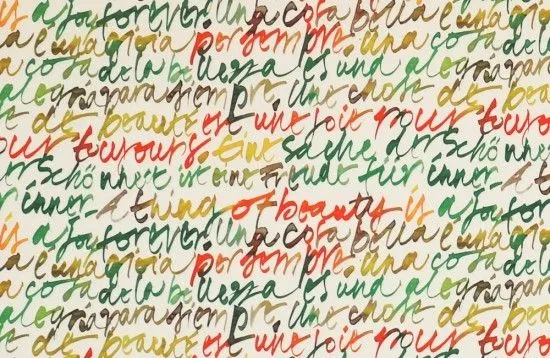 is a joy forever. Una cosa bella
a è una gioia per sempre. Una
a cosa de la belleza es una a
alegria para siempre. Une chose
se de beauté est une joie pour
our toujours. Eine sache der Schö
der Schönheit ist eine Freude für
für immer. A thing of beauty is
a joy forever. Una cosa bella
a è una gioia per sempre. Una
a cosa de la belleza es una a
alegria para siempre. Une chose
se de beauté est une joie pour